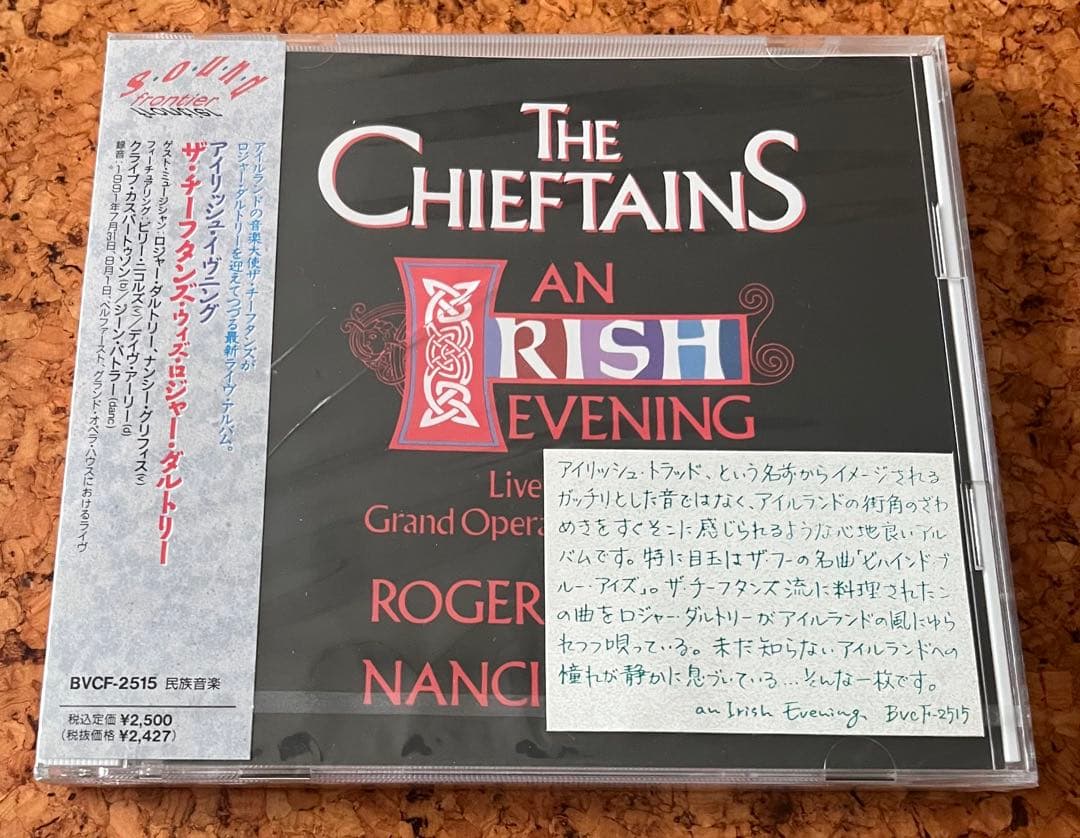 S・O・U・N・D
frontier
アイルランドの音楽大使ザ・チーフタンズが
ロジャー・ダルトリーを迎えてつづる最新ライヴ・アルバム。
アイリッシュ・イヴニング
ザ・チーフタンズ・ウィズ・ロジャー・ダルトリー
ゲスト・ミュージシャン:ロジャー・ダルトリー、ナンシー・グリフィス(v)
フィーチュアリング:ビリー・ニコルズ(v)/デイヴ・アーリー(d)
クライブ・カスバートゥソン(b)/ジーン・バトラー(danc)
録音:1991年7月31日、8月1日、ベルファースト、グランド・オペラ・ハウスにおけるライヴ
BVCF-2515 民族音楽
税込定価 ¥2,500
(税抜価格 ¥2,427)
THE
CHIEFTAINS
AN
IRISH
EVENING
Live
Grand Opera
ROGER
NANCI
アイリッシュ・トラッド、という名前からイメージされる
ガッチリとした音ではなく、アイルランドの街角のざわ
めきをすぐそこに感じられるような心地良いアル
バムです。特に目玉はザ・フーの名曲「ビハインド・ブ
ルー・アイズ」。ザ・チーフタンズ流に料理されたこ
の曲をロジャー・ダルトリーがアイルランドの風にゆら
れつつ唄っている。未だ知らないアイルランドへの
憧れが静かに息づいている…そんな一枚です。
an Irish Evening、BVCF-2515